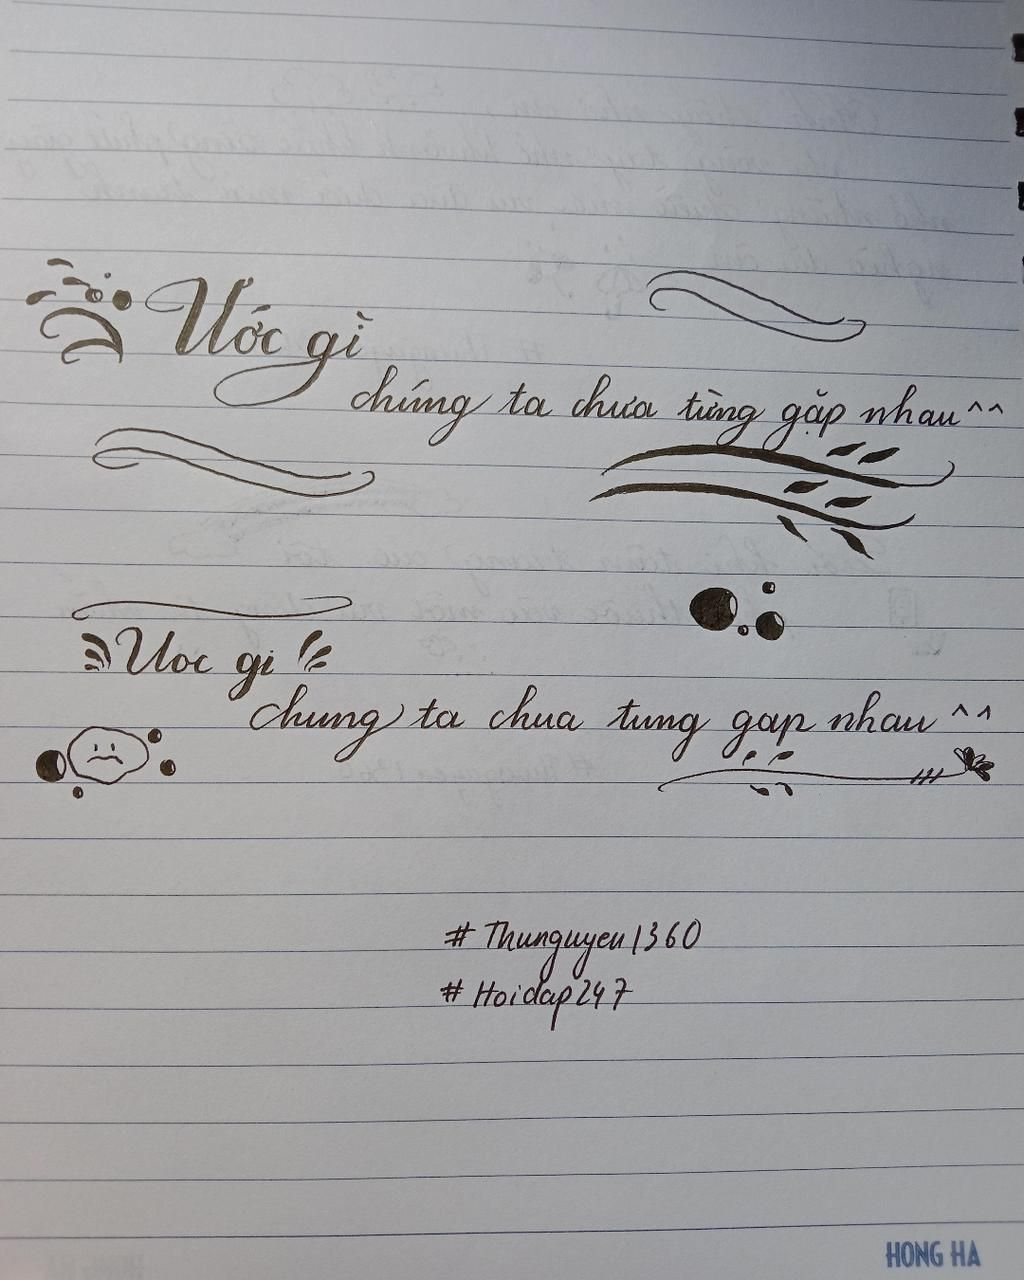 Ước gì
chúng ta chưa từng gặp nhau ^^
Uoc gi
chung ta chua tung gap nhau ^^
# Thunguyen1360
# Hoidap247
HONG HA